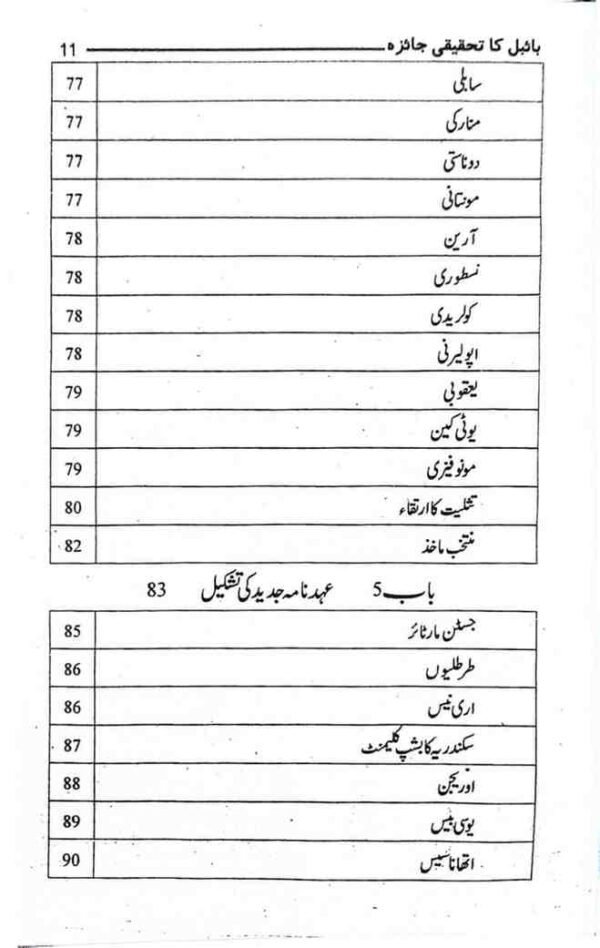 بائبل کا تحقیقی جائزہ 11
سابلی 77
منارکی 77
دوناستی 77
مونتانی 77
آرین 78
نسطوری 78
کولریدی 78
اپولیرنی 78
یعقوبی 79
یوٹی کین 79
مونوفیزی 79
تثلیت کا ارتقاء 80
منتخب ماخذ 82
باب 5 عہد نامہ جدید کی تشکیل 83
جسٹن مارٹائر 85
طرطلیوں 86
اری نیس 86
سکندریہ کا بشپ کلیمنٹ 87
اوریجن 88
یوسی بیس 89
اتھاناسیس 90